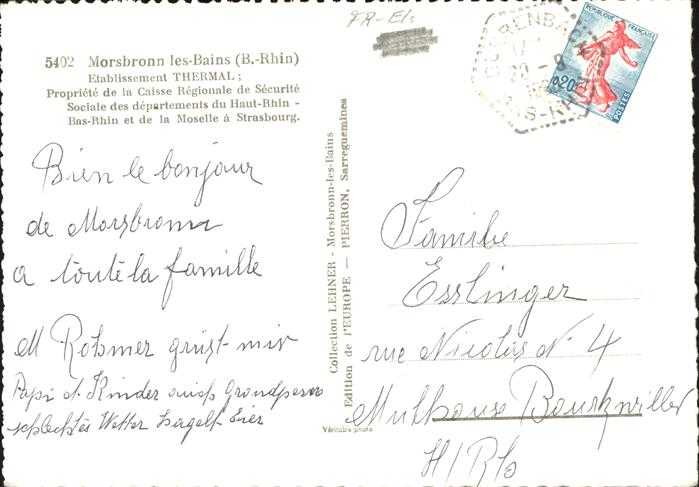 FR-Els
5402 Morsbronn les-Bains (B.-Rhin)
Etablissement THERMAL ;
Propriété de la Caisse Régionale de Sécurité
Sociale des départements du Haut-Rhin -
Bas-Rhin et de la Moselle à Strasbourg.
Bien le bonjour
de Morsbronn
a toute la famille
M Rohmer grüst mir
Papi et Kinder auch Grandperes
schlechtes Wetter
Collection LEHNER - Morsbronn-les-Bains
Edition de l'EUROPE — PIERRON, Sarreguemines
Véritable photo
DURRENBACH
REPUBLIQUE FRANÇAISE
0,20
POSTES
Famille
Esslinger
rue Nicolas N° 4
Mulhouse Bourtzwiller
H/Rh